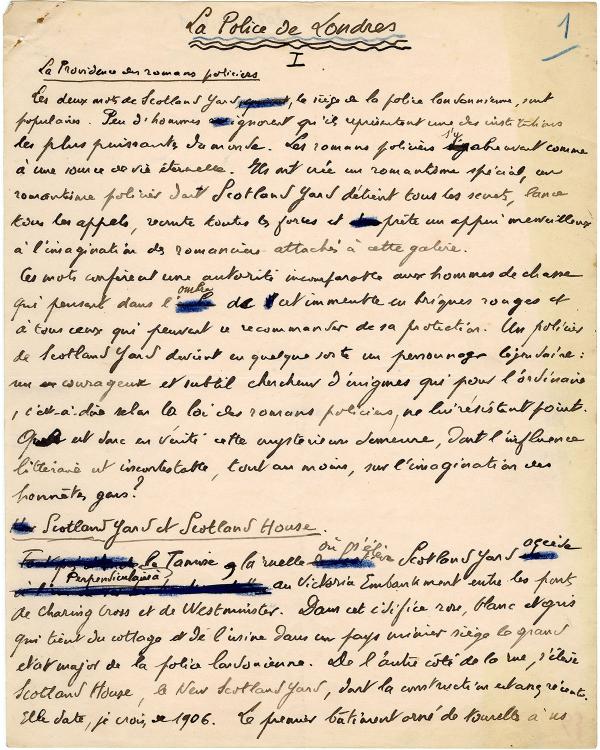 La Police de Londres
1
I
La Providence des romans policiers
Ces deux mots de Scotland Yard, le siège de la police londonienne, sont
populaires. Peu d'hommes ignorent qu'ils représentent une des institutions
les plus puissantes du monde. Les romans policiers s'y abreuvent comme
à une source de vie éternelle. Ils ont créé un romantisme spécial, un
romantisme policier dont Scotland Yard détient tous les secrets, lance
tous les appels, recrute toutes les forces et prête un appui merveilleux
à l'imagination des romanciers attachés à cette galère.
Ces mots confèrent une autorité incomparable aux hommes de chasse
qui pensent dans l'ombre de cet immeuble en briques rouges et
à tous ceux qui peuvent se recommander de sa protection. Un policier
de Scotland Yard devient en quelque sorte un personnage légendaire :
un courageux et subtil chercheur d'énigmes qui pour l'ordinaire
, c'est-à-dire selon la loi des romans policiers, ne lui résistent point.
Quelle est donc en vérité cette mystérieuse demeure, dont l'influence
littéraire est incontestable, tout au moins, sur l'imagination des
honnêtes gens?
Scotland Yard et Scotland House.
Perpendiculaire à la Tamise, la ruelle où s'élève Scotland Yard accède
au Victoria Embankment entre les ponts
de Charing Cross et de Westminster. Dans cet édifice rose, blanc et gris
qui tient du cottage et de l'usine dans un pays minier siège le grand
état major de la police londonienne. De l'autre côté de la rue, s'élève
Scotland House, le New Scotland Yard, dont la construction est assez récente.
Elle date, je crois, de 1906. Le premier bâtiment orné de tourelles à ses